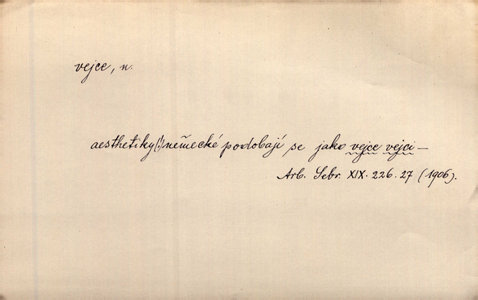 vejce, n.
aesthetiky(!) německé podobají se jako vejce vejci —
Arb. Sebr. XIX. 226. 27 (1906).